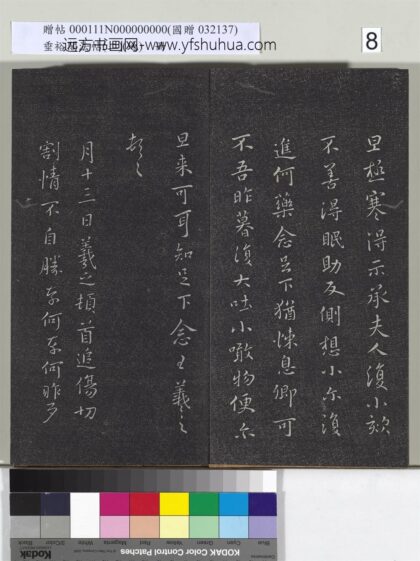 贈帖 000111N000000000(國贈 032137)
远方书画网-www.yfshuhua.com
8
旦極寒得示承夫人復小欬
不善得眠助反側想小尔復
進何藥念足下猶悚息卿可
不吾昨暮復大吐小噉物便尔
旦来可耳知足下念王羲之
頓首
月十三日羲之頓首追傷切
割情不自勝奈何奈何昨
Blue
Cyan
Green
Yellow
Red
Magenta
White
3/Color
Black
KODAK Color Control Patches